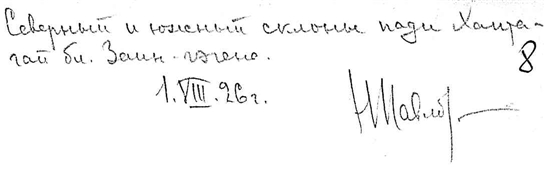 Северный и южный склоны пади Ханта-
гай бл. Заин-гэгена.
8
1.VIII.26г.
НПавлов